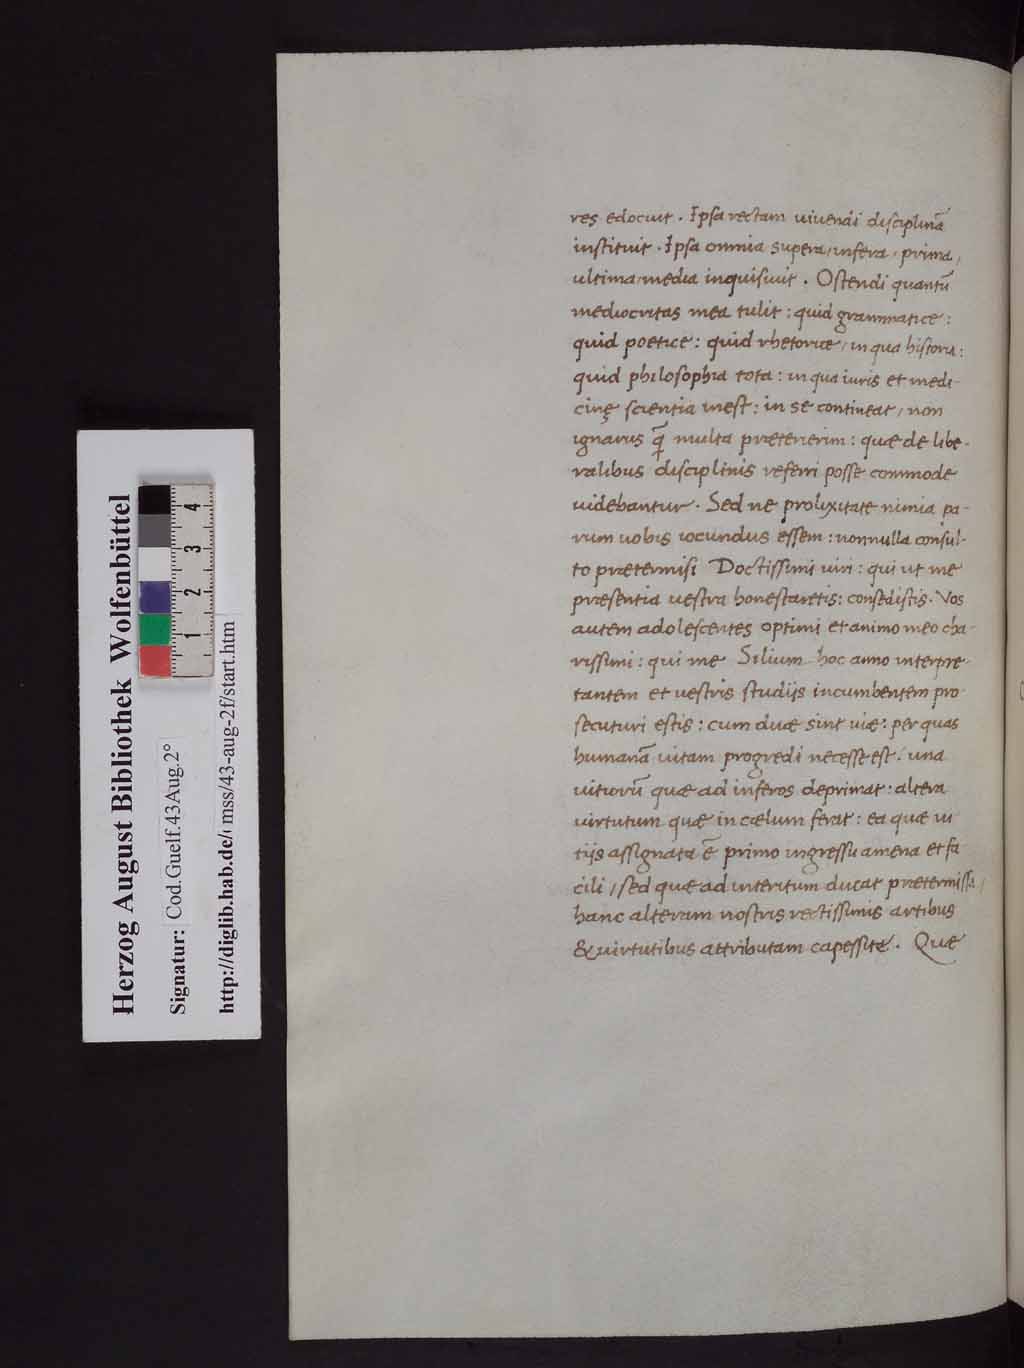 res edocuit . Ipsa rectam uiuendi disciplinã
instituit . Ipsa omnia supera / infera / prima /
ultima / media inquisiuit . Ostendi quantũ
mediocritas mea tulit : quid grammatice :
quid poetice : quid rhetorice / in qua historia :
quid philosophia tota : in qua iuris et medi-
cinę scientia inest : in se contineat / non
ignarus q̃ multa præterierim : quæ de libe-
ralibus disciplinis referri posse commode
uidebantur . Sed ne prolixitate nimia pa-
rum uobis iocundus essem : nonnulla consul-
to prætermisi Doctissimi uiri : qui ut me
præsentia uestra honestaretis : consedistis . Vos
autem adolescentes optimi et animo meo cha-
rissimi : qui me Silium hoc anno interpre-
tantem et uestris studijs incumbentem pro-
secuturi estis : cum duæ sint uiæ : per quas
humanã uitam progredi necesse est : una
uitiorũ quæ ad inferos deprimat : altera
uirtutum quæ in cælum ferat : ea quæ ui
tijs assignata ẽ primo ingressu amena et fa
cili / sed quæ ad interitum ducat prætermissa /
hanc alteram nostris rectissimis artibus
& uirtutibus attributam capessite . Quæ
Herzog August Bibliothek Wolfenbüttel
Signatur: Cod.Guelf.43Aug.2°
http://diglib.hab.de/ mss/43-aug-2f/start.htm
1 2 3 4